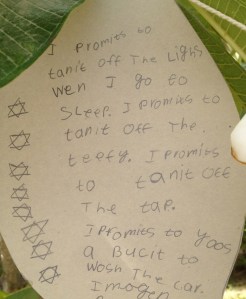 I promis to
tanit off The Lighs
wen I go to
SLeep. I promis to
tanit off The.
teefy. I promis
to tanit off
The tap.
I promis to yoos
a Bucit to
wosh The car.
Imogen